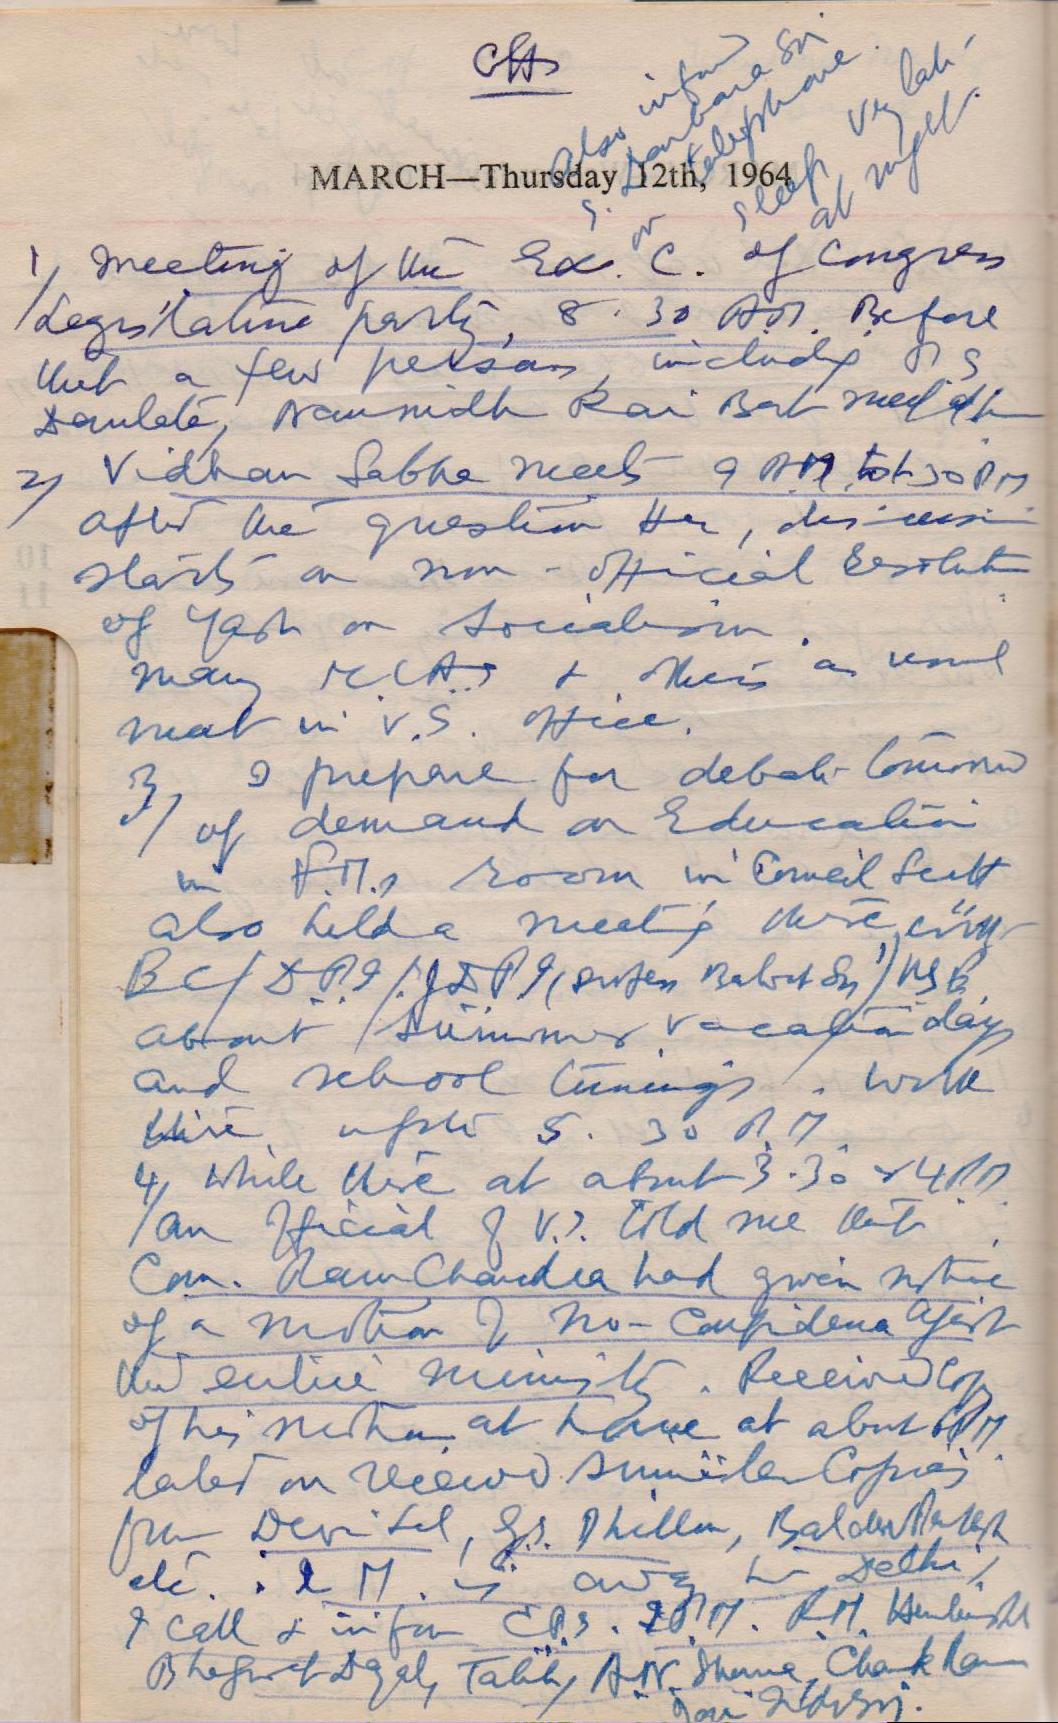 Chd
Also inform
G. Darbara Sn
on telephone.
Sleep very late
at night.
MARCH—Thursday 12th, 1964
1) Meeting of the Ex. C. of Congress
Legislative party, 8.30 A.M. Before
that a few persons, including
Rai
2) Vidhan Sabha meets 9 A.M. to 1.30 P.M
after the question Hr,
starts on non-official Resolution
of Yash on Socialism.
many M.L.A.s & others as usual
meet in V.S. office.
3) I prepare for debate tomorrow
of demand on Education
in F.M.s room in Council Sectt
also held a meeting there with
B C / D.P.I /
about summer vacation days
and school timings. Work
there upto 5.30 P.M.
4) While there at about 3.30 or 4 P.M
an official of V.S. told me that
Com. Ram Chandra had given notice
of a motion of no-confidence against
the entire ministry. Received copy
of his motion at home at about P.M.
later on received similar copies
from Devi Lal, G.S. Dhillon, Baldev Parkash
etc. C.M. is away to Delhi,
I call & inform
Bhagwat Dayal, Talib, A.N. Sharma, Chand Ram